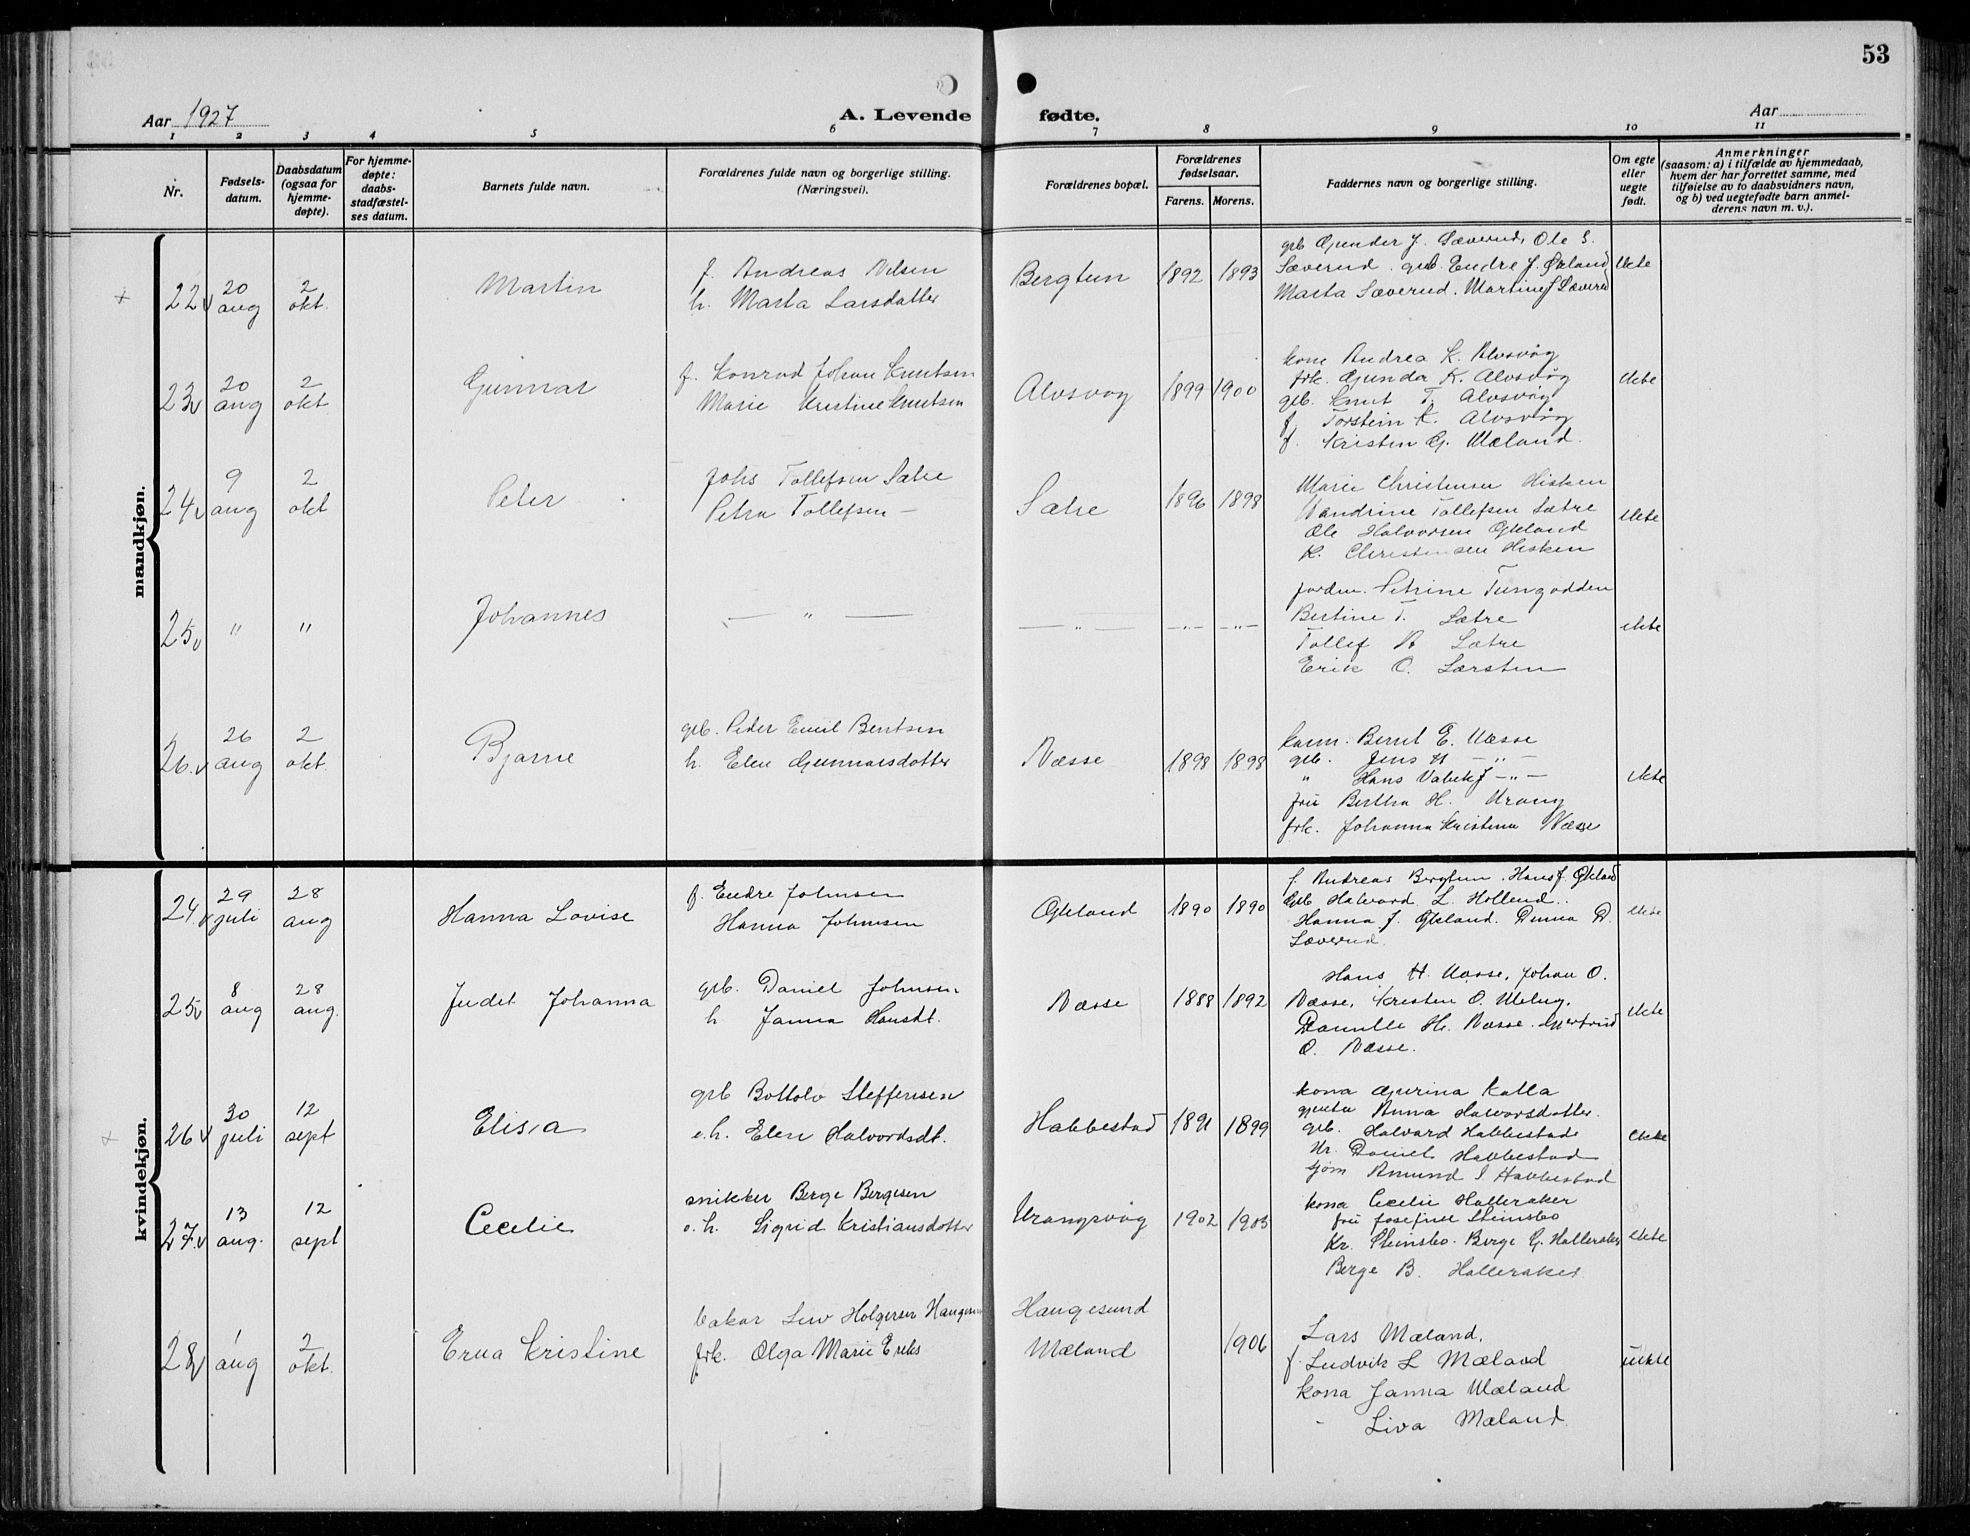 53
Aar 1927
A. Levende fødte.
Aar
1 2 3 4 5 6 7 8 9 10 11
Nr.
Fødsels-
datum.
Daabsdatum
(ogsaa for
hjemme-
døpte).
For hjemme-
døpte:
daabs-
stadfæstel-
ses datum.
Barnets fulde navn.
Forældrenes fulde navn og borgerlige stilling.
(Næringsvei).
Forældrenes bopæl.
Forældrenes
fødselsaar.
Farens. Morens.
Faddernes navn og borgerlige stilling.
Om egte
eller
uegte
født.
Anmerkninger
(saasom: a) i tilfælde av hjemmedaab,
hvem der har forrettet samme, med
tilføielse av to daabsvidners navn,
og b) ved uegtefødte barn anmel-
derens navn m. v.).
mandkjøn.
22
20
aug
2
okt.
Martin
f. Andreas Nilsen
h. Marta Larsdatter
Bergtun
1892 1893
grb Gunder J. Sæverud, Ole S.
Sæverud. grb. Endre J. Økland
Marta Sæverud. Martine J Sæverud
ekte
23
20
aug
2
okt
Gunnar
f. Konrad Johan Knutsen
Marie Kristine Knutsen
Alvsvog
1899 1900
kone Andrea K. Alvsvåg
frk. Gunda K. Alvsvåg
grb. Knut T. Alvsvåg
f. Torstein K. Alvsvåg
f. Kristen G. Mæland.
ekte
24
9
aug
2
okt
Peter
Johs Tollefsen Sætre
Petra Tollefsen —
Sætre
1896 1898
Marie Christensen Hisken
Wandrine Tollefsen Sætre
Ole Halvorsen Økland
K. Christensen Hisken
ekte
25
" "
Johannes
— " —
— " —
— " — — " —
jordm. Petrine Tungodden
Bertine T. Sætre
Tollef A Sætre
Erik O. Særsten
ekte
26.
26
aug
2
okt.
Bjarne
grb. Peder Emil Berntsen
h. Elen Gunnarsdatter
Næsse
1898 1898
kaem. Bernt E. Næsse
grb. Jens H — " —
" Hans Valent J — " —
frue Bertha H. Urang
frk. Johanna Kristina Næsse
ekte
kvindekjøn.
24
29
juli
28
aug
Hanna Lovise
f. Endre Johnsen
Hanna Johnsen
Økland
1890 1890
f. Andreas Bergtun. Hans J. Økland
Grb Halvard L. Hollund..
Hanna J. Økland. Dinna D.
Sæverud.
ekte
25
8
aug
28
aug.
Judit Johanna
grb. Daniel Johnsen
h Janna Hansdt.
Næsse
1888 1892
Hans H. Næsse, Johan O.
Næsse, Kristen O. Meling.
Danille H. Næsse. Gjertrud
O. Næsse.
ekte
26
30
juli
12
sept
Elisa
grb Bottolv Steffensen
e.h. Elen Halvordsdt.
Habbestad
1891 1899
kona Gurina Kalla
gjenta Anna Halvorsdatter.
grb. Halvard Habbestad
Ur. Daniel Habbestad
sjøm Amund S Habbestad
ekte
27.
13
aug.
12
sept
Cecelie
snikker Berge Bergesen
o. h. Sigrid Kristiansdatter
Urangsvåg
1902 1903
kona Cecelie Halleraker
frue Josefine Steinsbo
Kr. Steinsbo. Berge G. Halleraker
Berge B. Halleraker
ekte
28
1
aug
2
okt.
Erna Kristine
bakar Holgersen Haugesund
frk. Olga Marie Eriks
Haugesund
Mæland
1906
Lars Mæland,
f. Ludvik L Mæland
kona Janna Mæland
- Liva Mæland
uekte